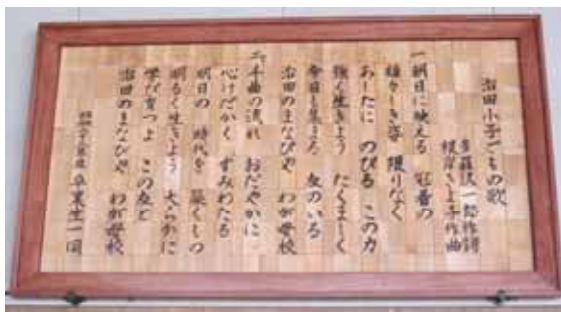 治田小子どもの歌
一郎作詞
根岸きよ子作曲
一 朝日に映える 冠着の
雄々しき姿 限りなく
あしたに のびる この力
強く生きよう たくましく
今日も集まる 友のいる
治田のまなびや わが母校
二 千曲の流れ おだやかに
心けだかく すみわたる
明日の 時代を 築くもの
明るく生きよう 大らかに
学び育つよ この友と
治田のまなびや わが母校
卒業生一同